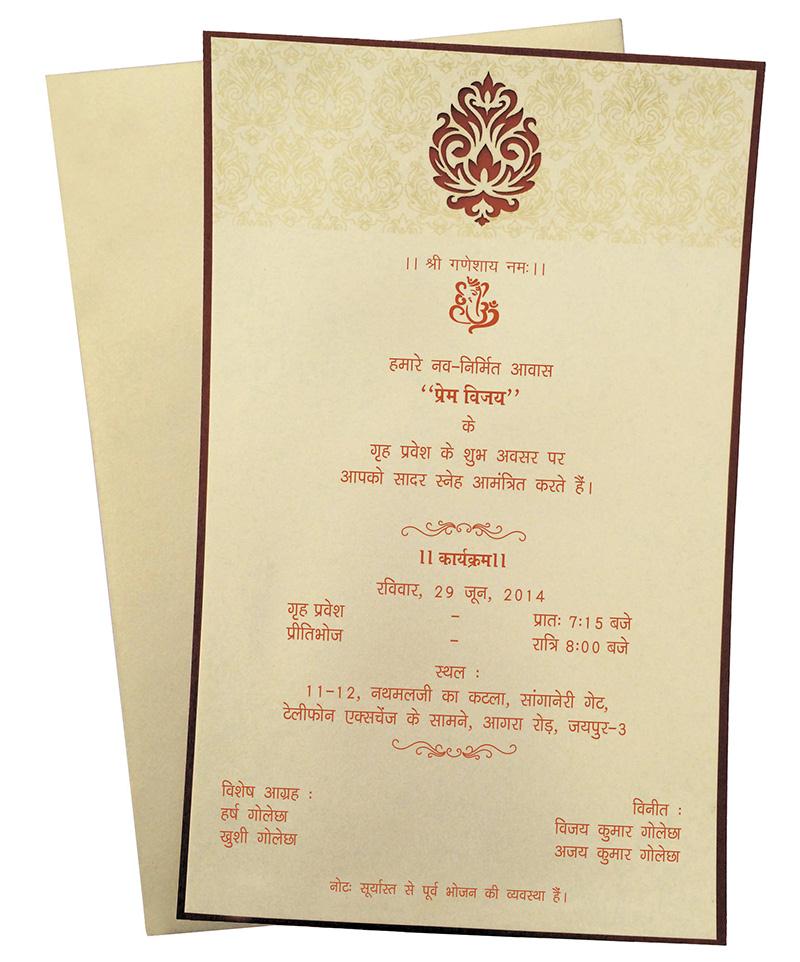 ।। श्री गणेशाय नमः।।
हमारे नव-निर्मित आवास
‘‘प्रेम विजय’’
के
गृह प्रवेश के शुभ अवसर पर
आपको सादर स्नेह आमंत्रित करते हैं।
।। कार्यक्रम।।
रविवार, 29 जून, 2014
गृह प्रवेश – प्रातः 7:15 बजे
प्रीतिभोज – रात्रि 8:00 बजे
स्थल :
11-12, नथमलजी का कटला, सांगानेरी गेट,
टेलीफोन एक्सचेंज के सामने, आगरा रोड़, जयपुर-3
विशेष आग्रह :
हर्ष गोलेछा
खुशी गोलेछा
विनीत :
विजय कुमार गोलेछा
अजय कुमार गोलेछा
नोटः सूर्यास्त से पूर्व भोजन की व्यवस्था हैं।